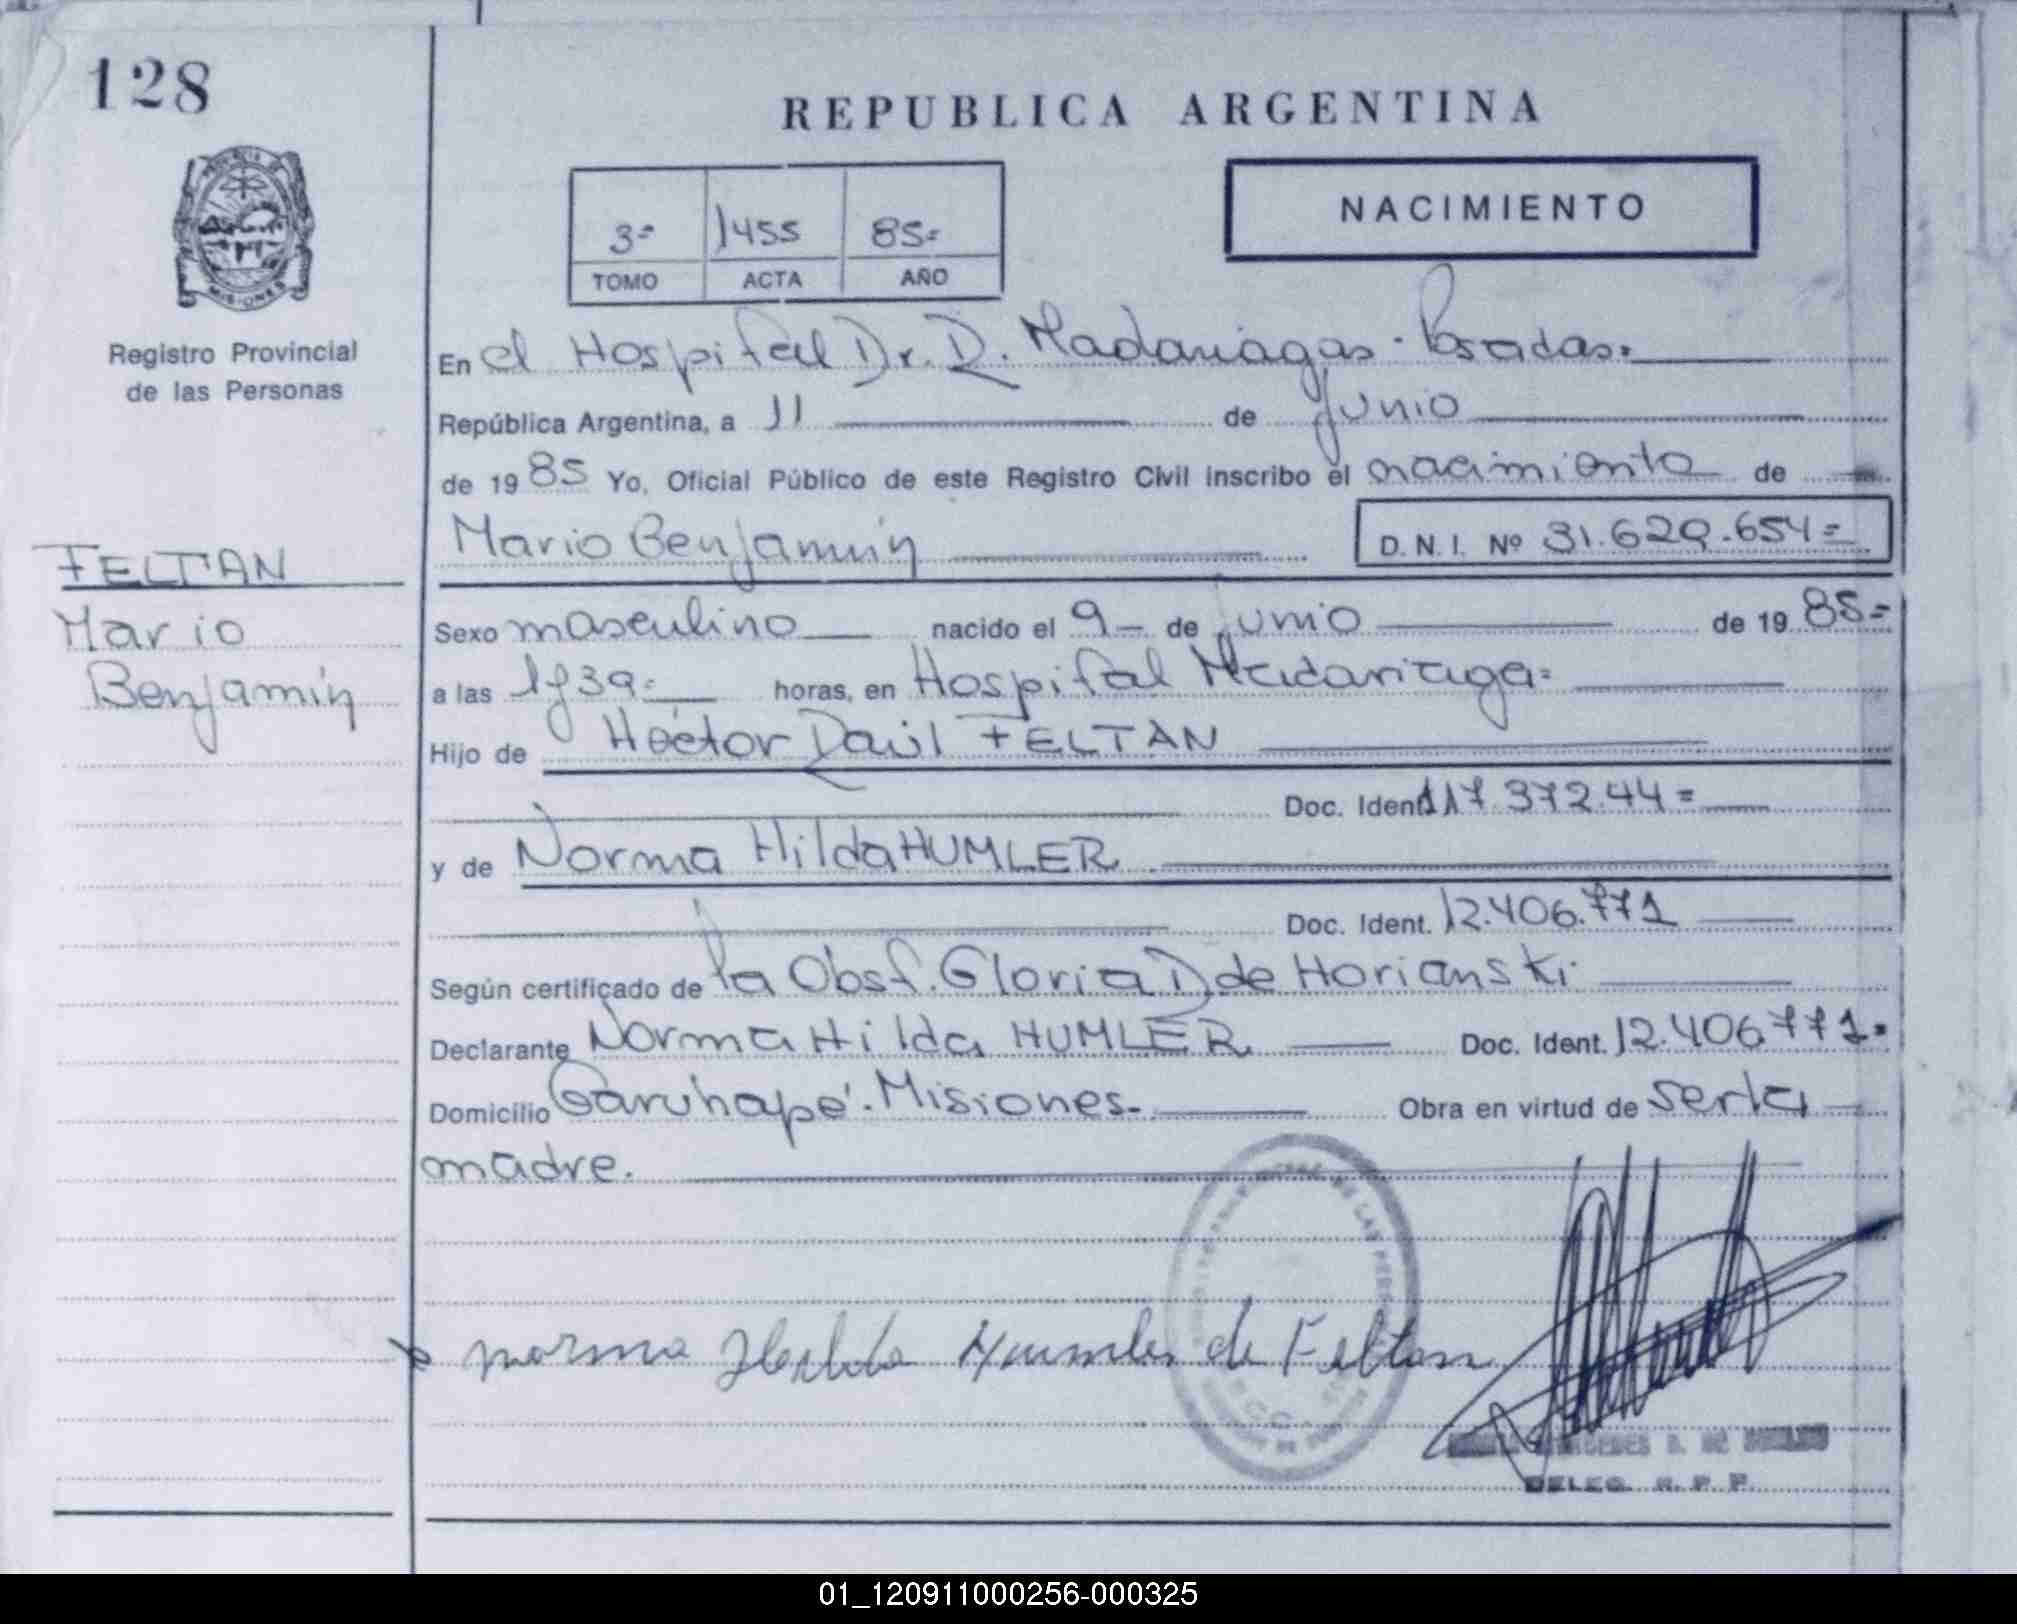 128
REPUBLICA ARGENTINA
NACIMIENTO
3= 1455 85=
TOMO ACTA AÑO
MISIONES
Registro Provincial
de las Personas
En el Hospital Dr. R. Madariagas - Posadas.
República Argentina, a 11 de Junio
de 1985 Yo, Oficial Público de este Registro Civil inscribo el nacimiento de
Mario Benjamín D.N.I. Nº 31.629.654=
FELTAN
Mario
Benjamín
Sexo masculino nacido el 9- de junio de 1985=
a las horas, en Hospital Madariaga=
Hijo de Héctor Raúl FELTAN
Doc. Ident.
y de Norma Hilda HUMLER
Doc. Ident. 12.406.771
Según certificado de la Obst. Gloria D de Horianski
Declarante Norma Hilda HUMLER Doc. Ident. 12.406.771=
Domicilio Garuhapé - Misiones. Obra en virtud de ser la
madre.
norma Hilda Humler de Feltan
DELEG. R. P. P.
01_120911000256-000325